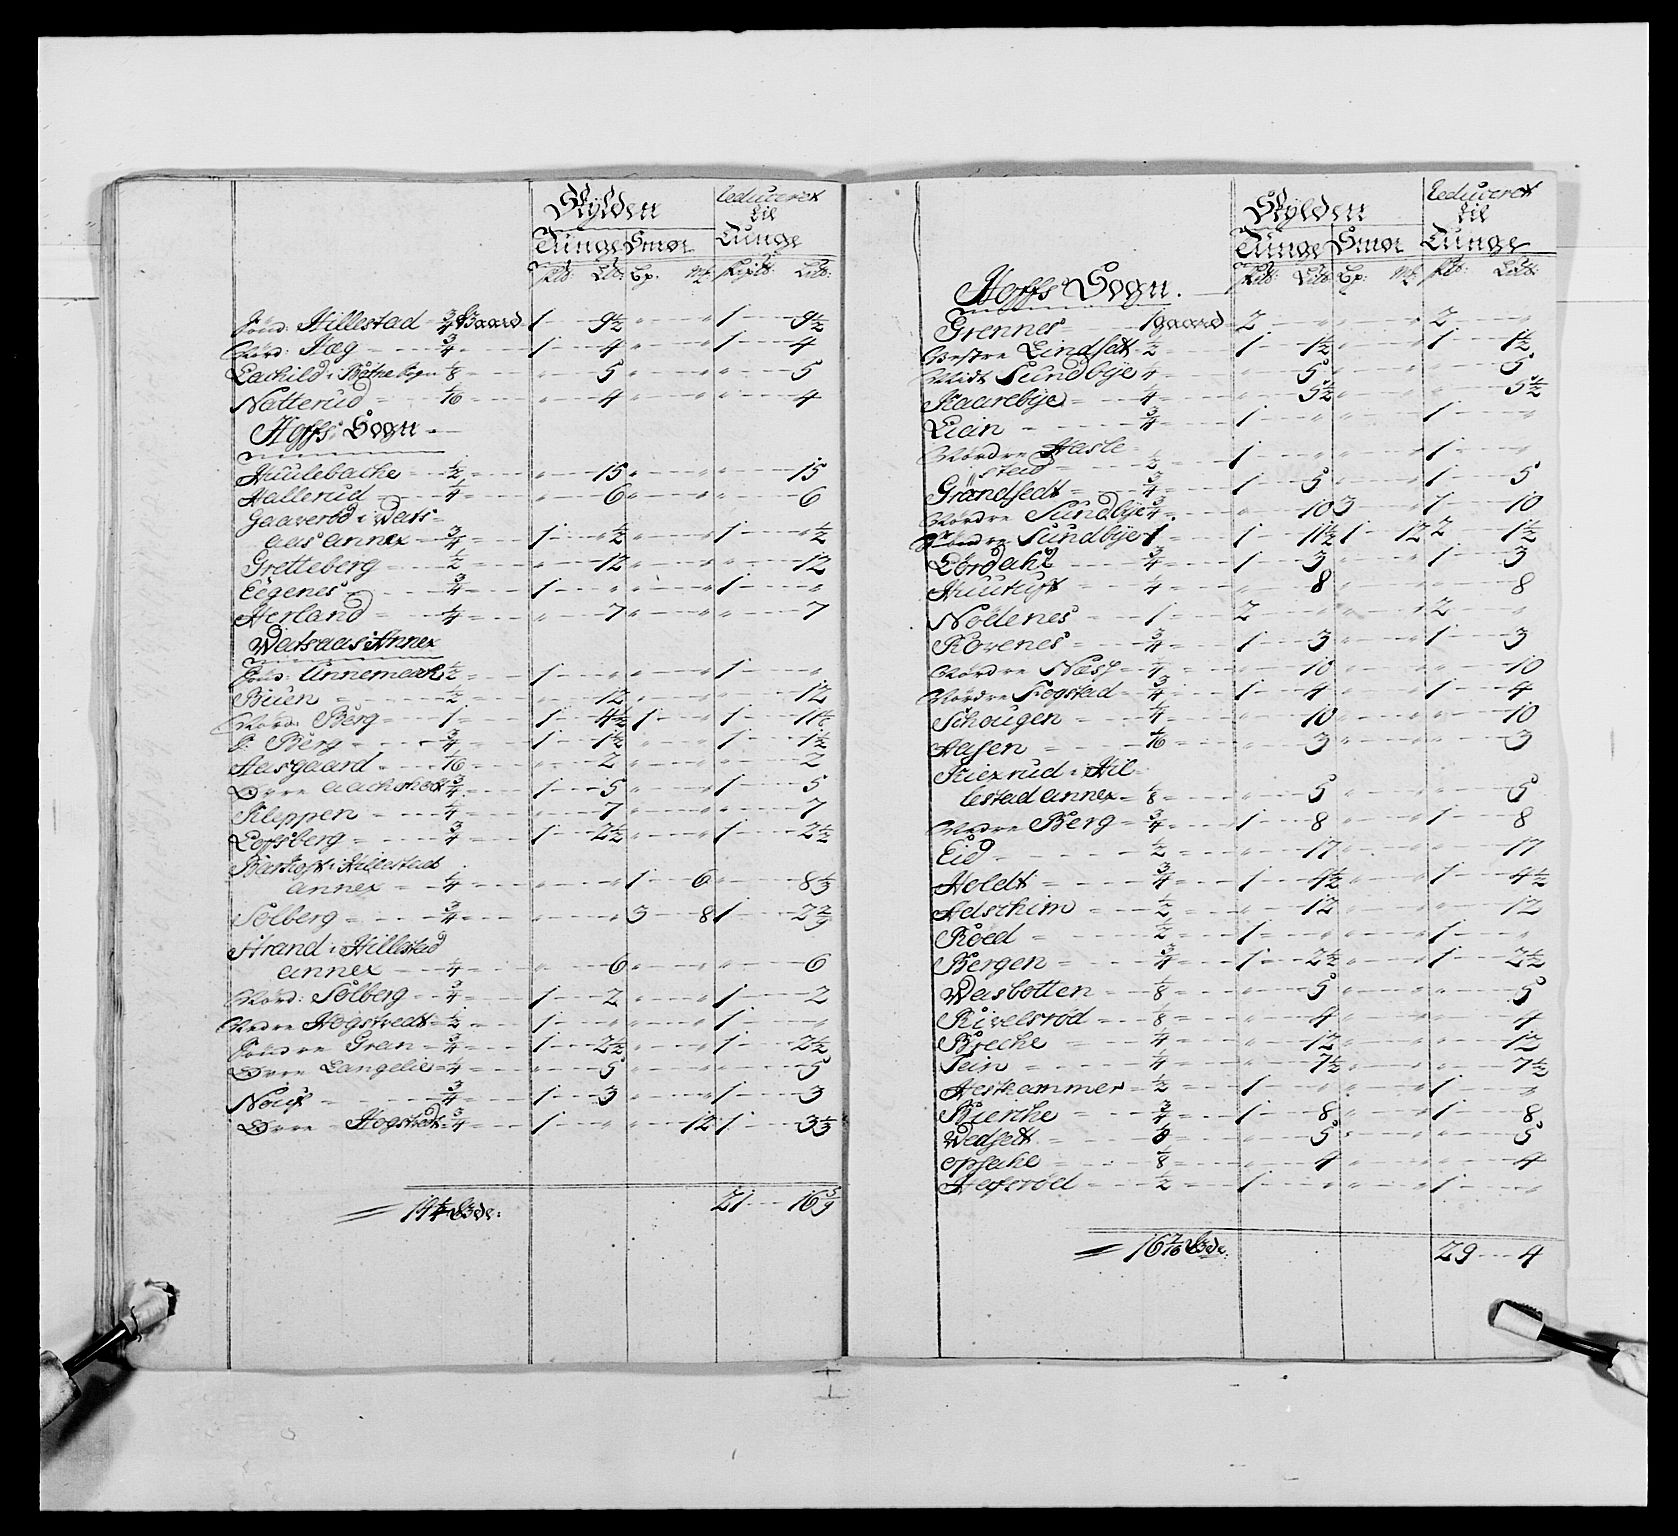 Skÿlden
reduceret
til
Tunge Smør Tunge
Sk℔: L℔: Bp: Mk: Skip℔: L℔:
Sönd: Hillestad ¾ Gaard 1 9½ " " 1 9½
Nörd: Hæg ¾ 1 4 " " 1 4
Lachild i Båthe Sogn ⅛ " 5 " " " 5
Natterud 1/16 " 4 " " " 4
Hoffs Sogn
Huulebache ½ " 15 " " " 15
Hallerud ¼ " 6 " " " 6
Gaaverød i Vats
aas annex ¾ 1 ½ " " 1 ½
Gretteberg ½ " 12 " " " 12
Eegenes ¾ 1 " " " 1 "
Herland ¼ " 7 " " " 7
Vatsaas Annex
Sönd: Linnemark ½ 1 " " " 1 "
Buen ½ " 12 " " " 12
Nörd: Berg 1 1 4½ 1 " 1 11½
S: Berg ¾ 1 1½ " " 1 1½
Aasgaard 1/16 " 2 " " " 2
Øvre ¾ 1 5 " " 1 5
Kleppen ¼ " 7 " " " 7
Loffsberg ¾ 1 2½ " " 1 2½
i Hillestad
annex ¼ " " 1 6 " 8⅓
Solberg ¾ " " 3 8 1 2 2/9
Strand i Hillestad
annex ¼ " 6 " " " 6
Nörd: Solberg ¾ 1 2 " " 1 2
Nedre Hogstvedt ½ 1 " " " 1 "
Söndre Gran ¾ 1 2½ " " 1 2½
Øvre Langelie ¼ " 5 " " " 5
¾ 1 3 " " 1 3
Øvre Hogstvedt ¾ 1 " " 12 1 3⅓
21 16 5/9
Skÿlden
reduceret
til
Tunge Smør Tunge
Sk℔: L℔: Bp: Mk: Sk℔: L℔:
Hoffs Sogn.
Grennes 1 gaard 2 " " " 2 "
Vestre Lindset ½ 1 1½ " " 1 1½
Midt Sundbÿe ¼ " 5 " " " 5
Kaarebÿe ¼ " 5½ " " " 5½
Lian ¾ 1 " " " 1 "
Nördre Hasle
stad ½ 1 " " " 1 "
Grandsedt ¾ 1 5 " " 1 5
Nördre Sundbÿe ¾ " 10 3 " 1 10
Söndre Sundbÿe 1 1 11½ 1 12 2 1½
Lördahl ¾ 1 3 " " 1 3
Huutuft ¼ " 8 " " " 8
Nödenes 1 2 " " " 2 "
Rövenes ¾ 1 3 " " 1 3
Nördre Næss ¼ " 10 " " " 10
Nördre Fogstad ¾ 1 4 " " 1 4
Schougen ¼ " 10 " " " 10
Hasen 1/16 " 3 " " " 3
Kiexrud i Hil
lestad annex ⅛ " 5 " " " 5
Nedre Berg ¾ 1 8 " " 1 8
Eid ½ " 17 " " " 17
Holdt ¾ 1 4½ " " 1 4½
Adschim ½ " 12 " " " 12
Röed ½ 1 " " " 1 "
Bergen ¾ 1 2½ " " 1 2½
Vasbotten ⅛ " 5 " " " 5
Kivelsröd ⅛ " 4 " " " 4
Breche ¼ " 12 " " " 12
Tein ¼ " 7½ " " " 7½
Hestkammer ½ 1 " " " 1 "
Kierche ¾ 1 8 " " 1 8
Vedsedt ⅛ " 5 " " " 5
opsahl ⅛ " 4 " " " 4
Hafsröd ½ 1 " " " 1 "
16 7/16 Gde: 29 4